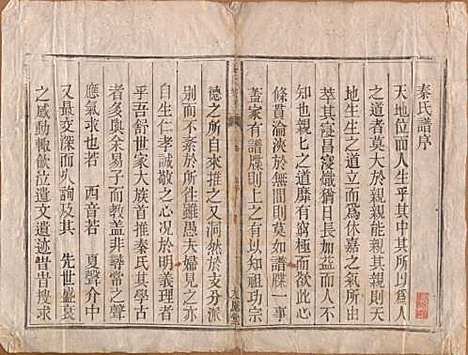 秦氏譜序
天地位而人生乎其中其所以為人
之道者莫大於親親能親其親則天
地生生之道立而為休嘉之氣所由
萃其寖昌寖熾猶日長加益而人不
知也親匕之道靡有窮極而欲此心
條貫淪浹於無間則莫如譜牒一事
蓋家有譜牒則上之有以知祖功宗
德之所自來推之又洞然於支分派
別而不紊於所往雖愚夫婦見之亦
自生仁孝誠敬之心况於明義理者
乎吾舒世家大族首推秦氏其學古
者多與余易子而教盖非尋常之聲
應氣求也若 西音若 夏聲介中
又最交深而久詢及其 先世盛衰
之感動輒飲泣遺文遺迹昔昔搜求